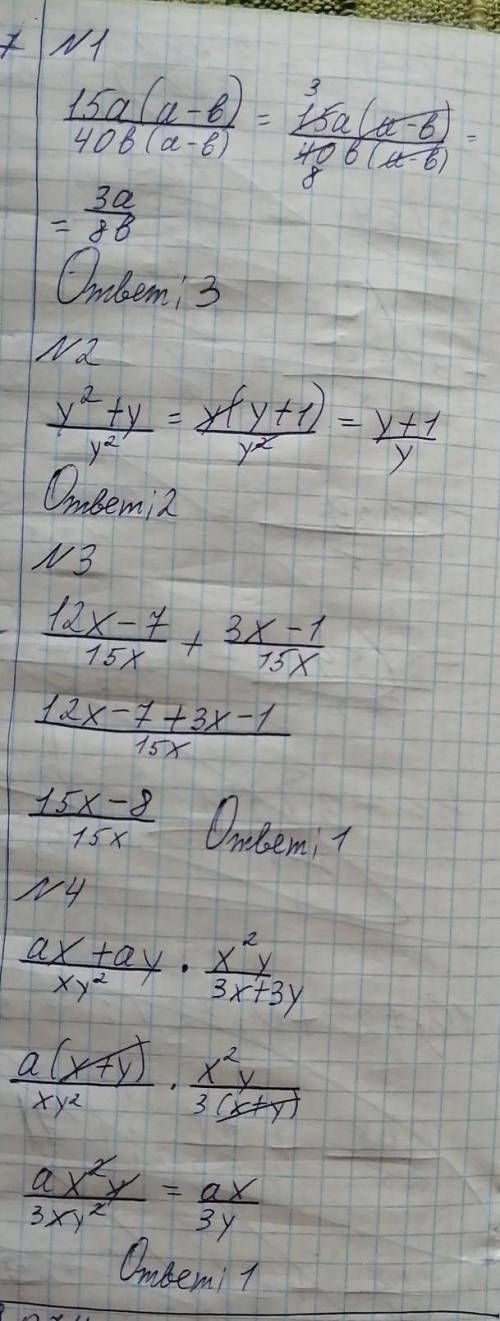 7 N1
15a(a-b)/40b(a-b) = 3 15a(a-b)/40b(a-b) 8 =
= 3a/8b
Ответ: 3
N2
y²+y/y² = y(y+1)/y² = y+1/y
Ответ: 2
N3
12x-7/15x + 3x-1/15x
12x-7+3x-1/15x
15x-8/15x Ответ: 1
N4
ax+ay/xy² · x²y/3x+3y
a(x+y)/xy² · x²y/3(x+y)
ax²y/3xy² = ax/3y
Ответ: 1